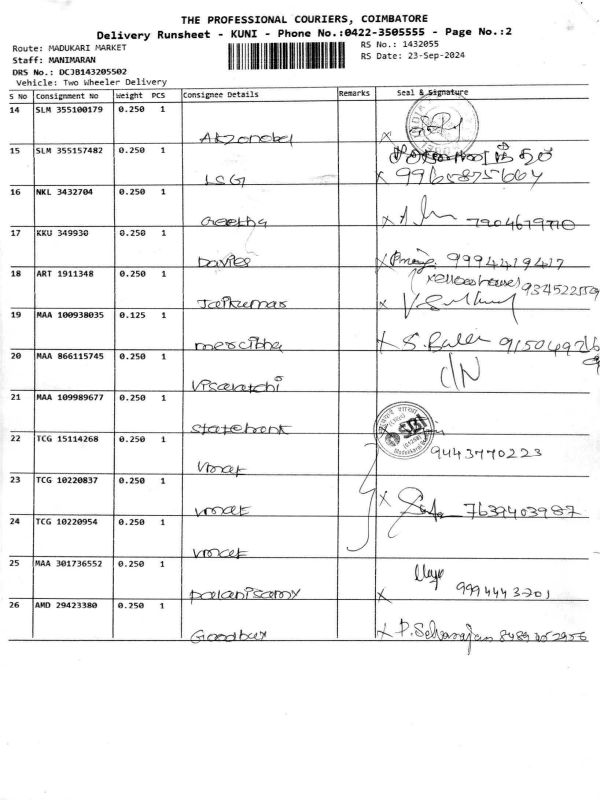 THE PROFESSIONAL COURIERS, COIMBATORE
Delivery Runsheet - KUNI - Phone No.:0422-3505555 - Page No.:2
Route: MADUKARI MARKET
RS No.: 1432055
Staff: MANIMARAN
RS Date: 23-Sep-2024
DRS No.: DCJB143205502
Vehicle: Two Wheeler Delivery
S No Consignment No Weight PCS Consignee Details Remarks Seal & Signature
14 SLM 355100179 0.250 1
Akzonobel X
15 SLM 355157482 0.250 1
LSG X 9965875664
16 NKL 3432704 0.250 1
Geetha X 7904679770
17 KKU 349930 0.250 1
Davies X 9994419417
18 ART 1911348 0.250 1
Jaikumar X
19 MAA 100938035 0.125 1
mercitha X
20 MAA 866115745 0.250 1 C/N
Visaratchi
21 MAA 109989677 0.250 1
statebank X SBI
22 TCG 15114268 0.250 1
vmat 9443770223
23 TCG 10220837 0.250 1
vmat X 7639403987
24 TCG 10220954 0.250 1
vmat
25 MAA 301736552 0.250 1
palanisamy X 9994443701
26 AMD 29423380 0.250 1
Goodbuy X